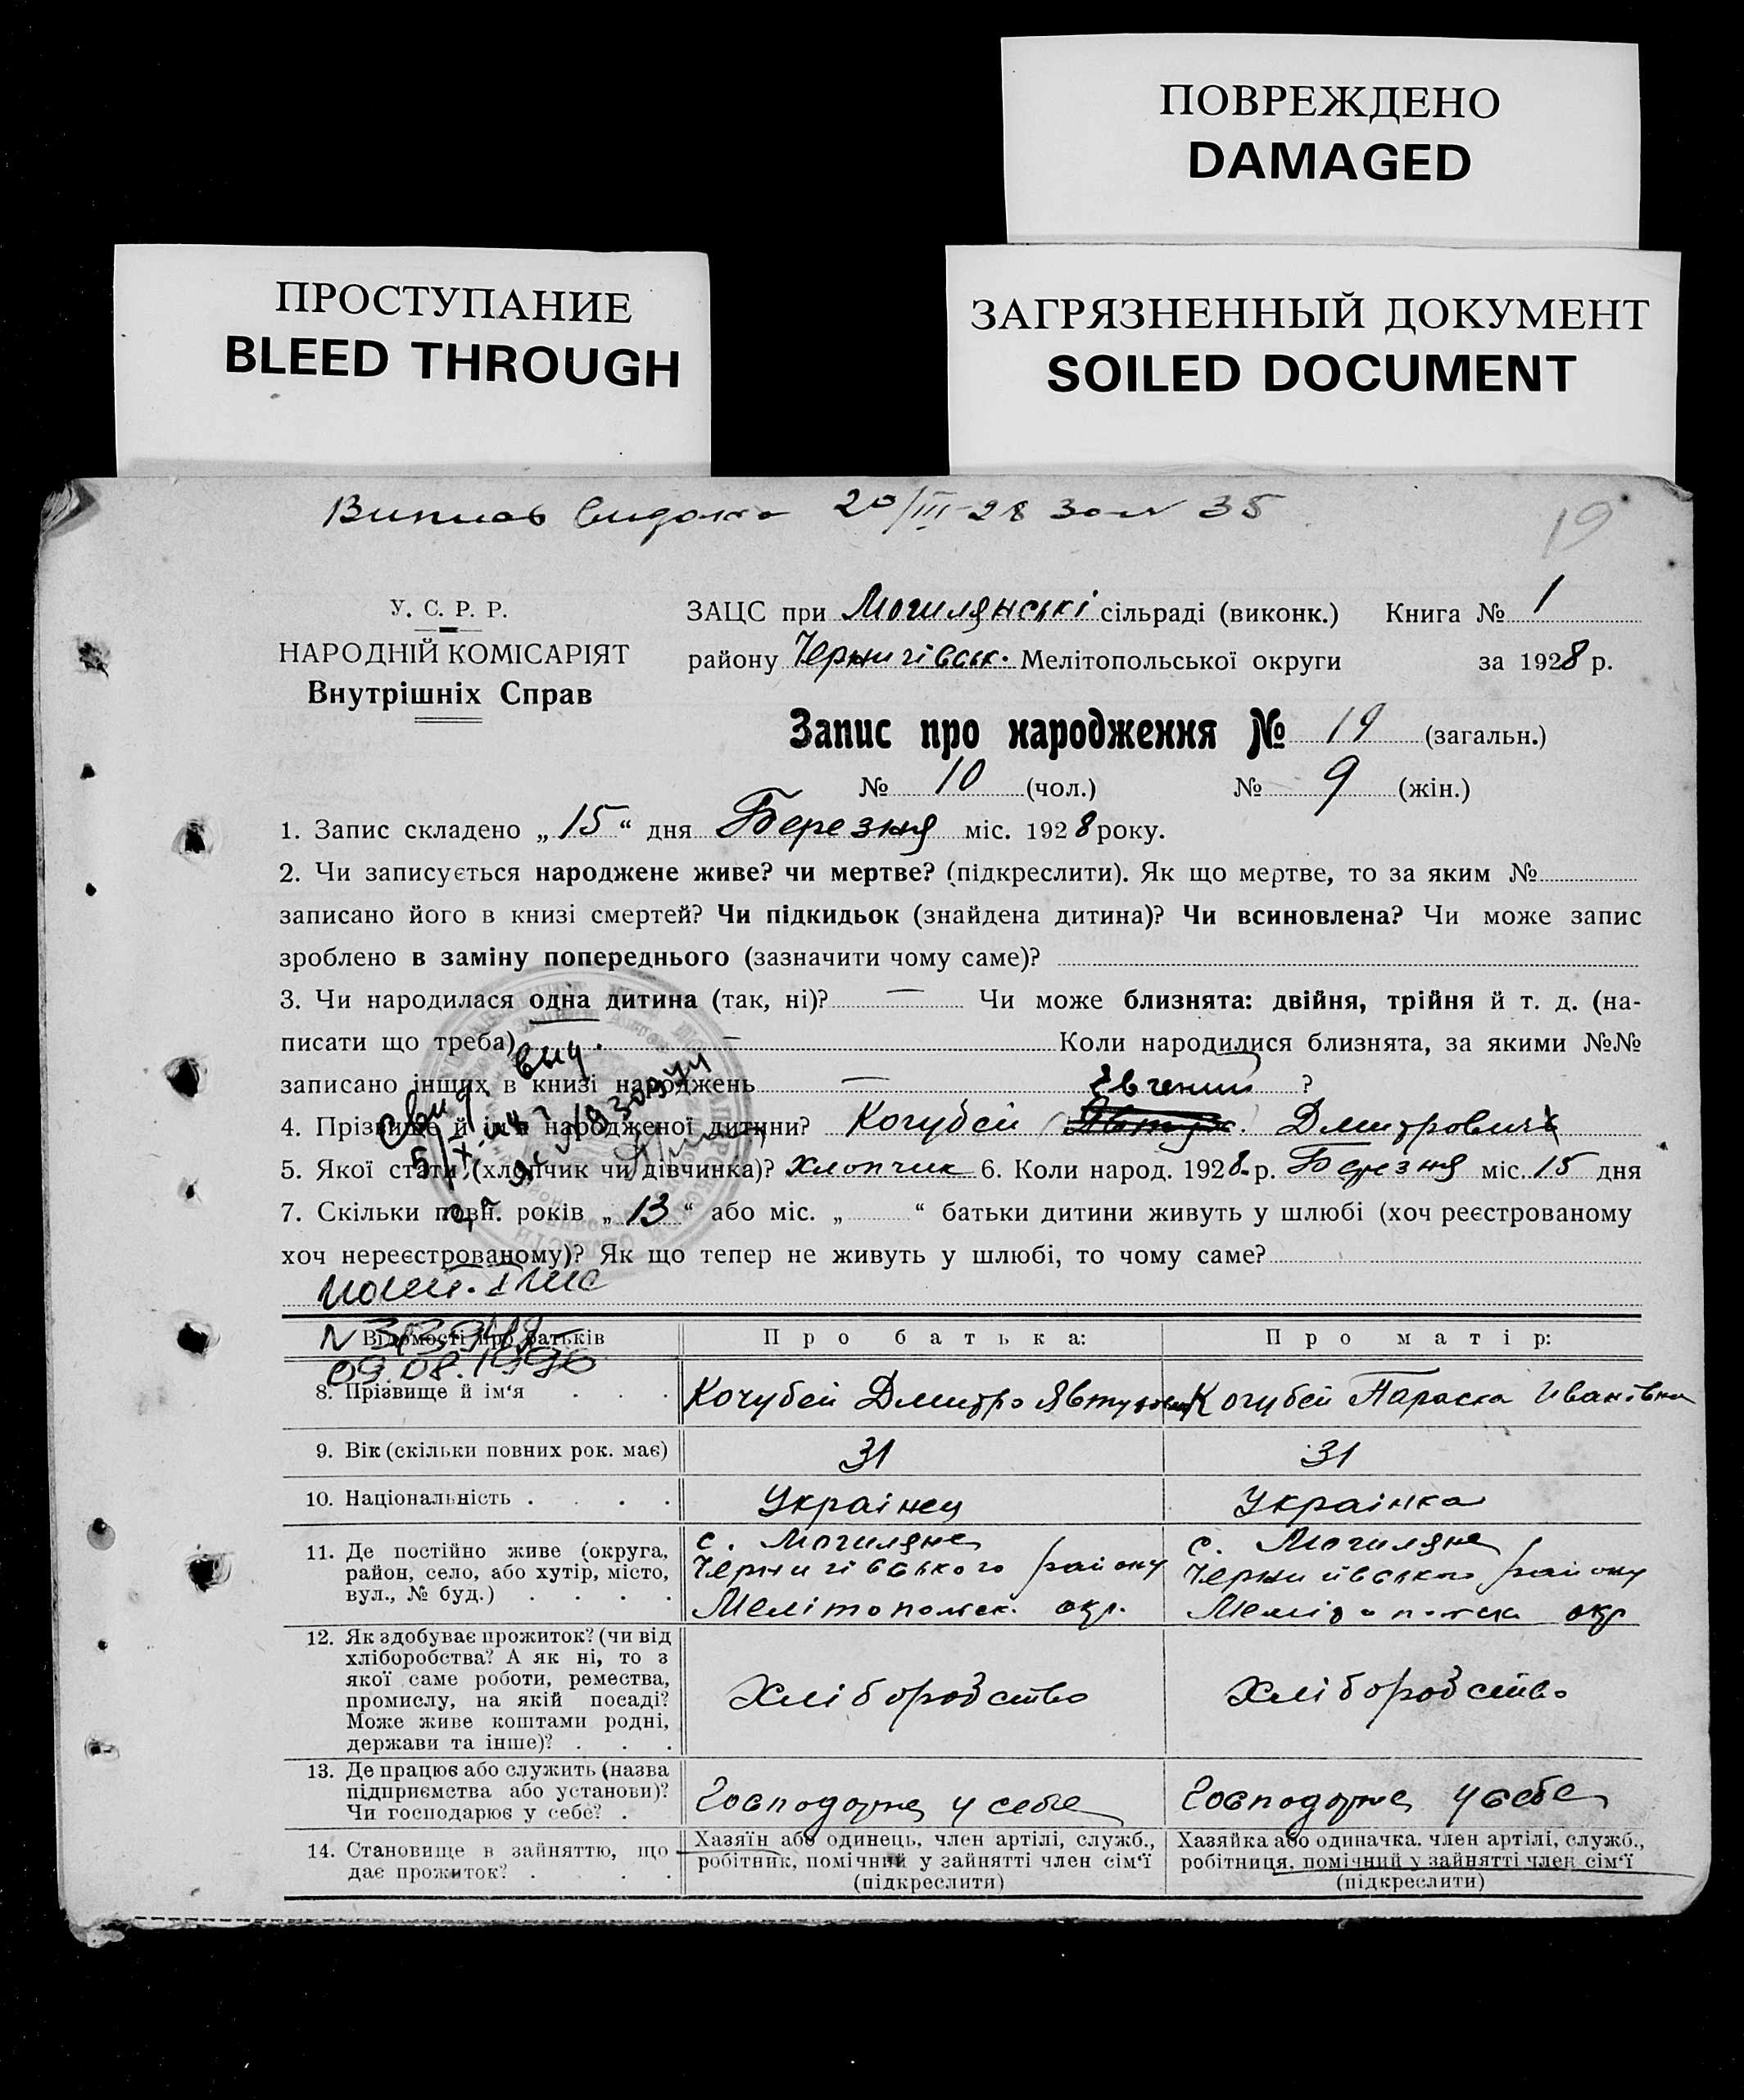 ПОВРЕЖДЕНО
DAMAGED
ПРОСТУПАНИЕ
BLEED THROUGH
ЗАГРЯЗНЕННЫЙ ДОКУМЕНТ
SOILED DOCUMENT
20/III-28 35
19
У. С. Р. Р.
НАРОДНІЙ КОМІСАРІЯТ
Внутрішніх Справ
ЗАЦС при Могилянські сільраді (виконк.) Книга № 1
району Чернигівськ. Мелітопольської округи за 1928 р.
Запис про народження № 19 (загальн.)
№ 10 (чол.) № 9 (жін.)
1. Запис складено „15“ дня Березня міс. 1928 року.
2. Чи записується народжене живе? чи мертве? (підкреслити). Як що мертве, то за яким №
записано його в книзі смертей? Чи підкидьок (знайдена дитина)? Чи всиновлена? Чи може запис
зроблено в заміну попереднього (зазначити чому саме)?
3. Чи народилася одна дитина (так, ні)? — Чи може близнята: двійня, трійня й т. д. (на-
писати що треба) — Коли народилися близнята, за якими №№
записано інших в книзі народжень — ?
Євгений
4. Прізвище й ім'я народженої дитини? Кочубей Дмитрович
5. Якої статі (хлопчик чи дівчинка)? Хлопчик 6. Коли народ. 1928 р. Березня міс. 15 дня
7. Скільки повн. років „13“ або міс. „ “ батьки дитини живуть у шлюбі (хоч реєстрованому
хоч нереєстрованому)? Як що тепер не живуть у шлюбі, то чому саме?
Відомості про батьків Про батька: Про матір:
09.08.1996
8. Прізвище й ім'я . . . Кочубей Дмитро Явтухович Кочубей Параска Ивановна
9. Вік (скільки повних рок. має) 31 31
10. Національність . . . . Украінец Украінка
11. Де постійно живе (округа, район, село, або хутір, місто, вул., № буд.) . . . .
с. Могиляне
Чернигівського району
Мелітопольск. окр.
с. Могиляне
Чернигівського району
Мелітопольск окр
12. Як здобуває прожиток? (чи від
хліборобства? А як ні, то з
якої саме роботи, ремества,
промислу, на якій посаді?
Може живе коштами родні,
держави та інше)? . . .
Хлібородство
Хлібородство
13. Де працює або служить (назва
підприємства або установи)?
Чи господарює у себе? .
Господарює у себе
Господарює у себе
14. Становище в зайняттю, що
дає прожиток? . . . .
Хазяїн або одинець, член артілі, служб.,
робітник, помічний у зайнятті член сім'ї
(підкреслити)
Хазяйка або одиначка. член артілі, служб.,
робітниця, помічний у зайнятті член сім'ї
(підкреслити)